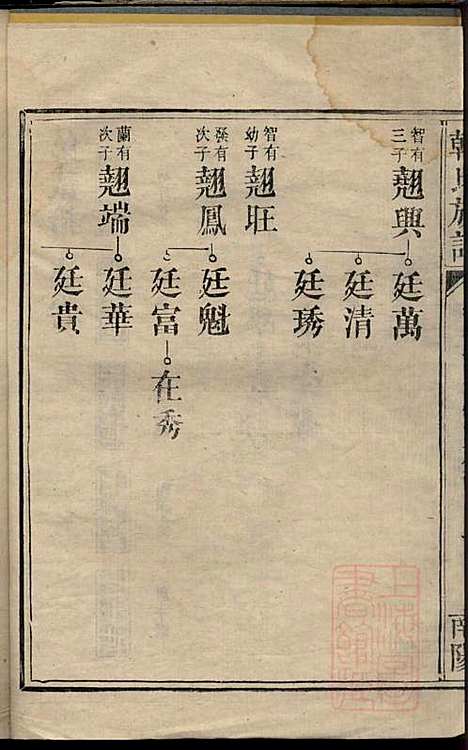 韓氏族譜
南陽
智有三子 翹興 廷萬
廷清
廷琇
智有幼子 翹旺
有次子 翹鳳 廷魁
廷富 在秀
蘭有次子 翹端 廷華
廷貴